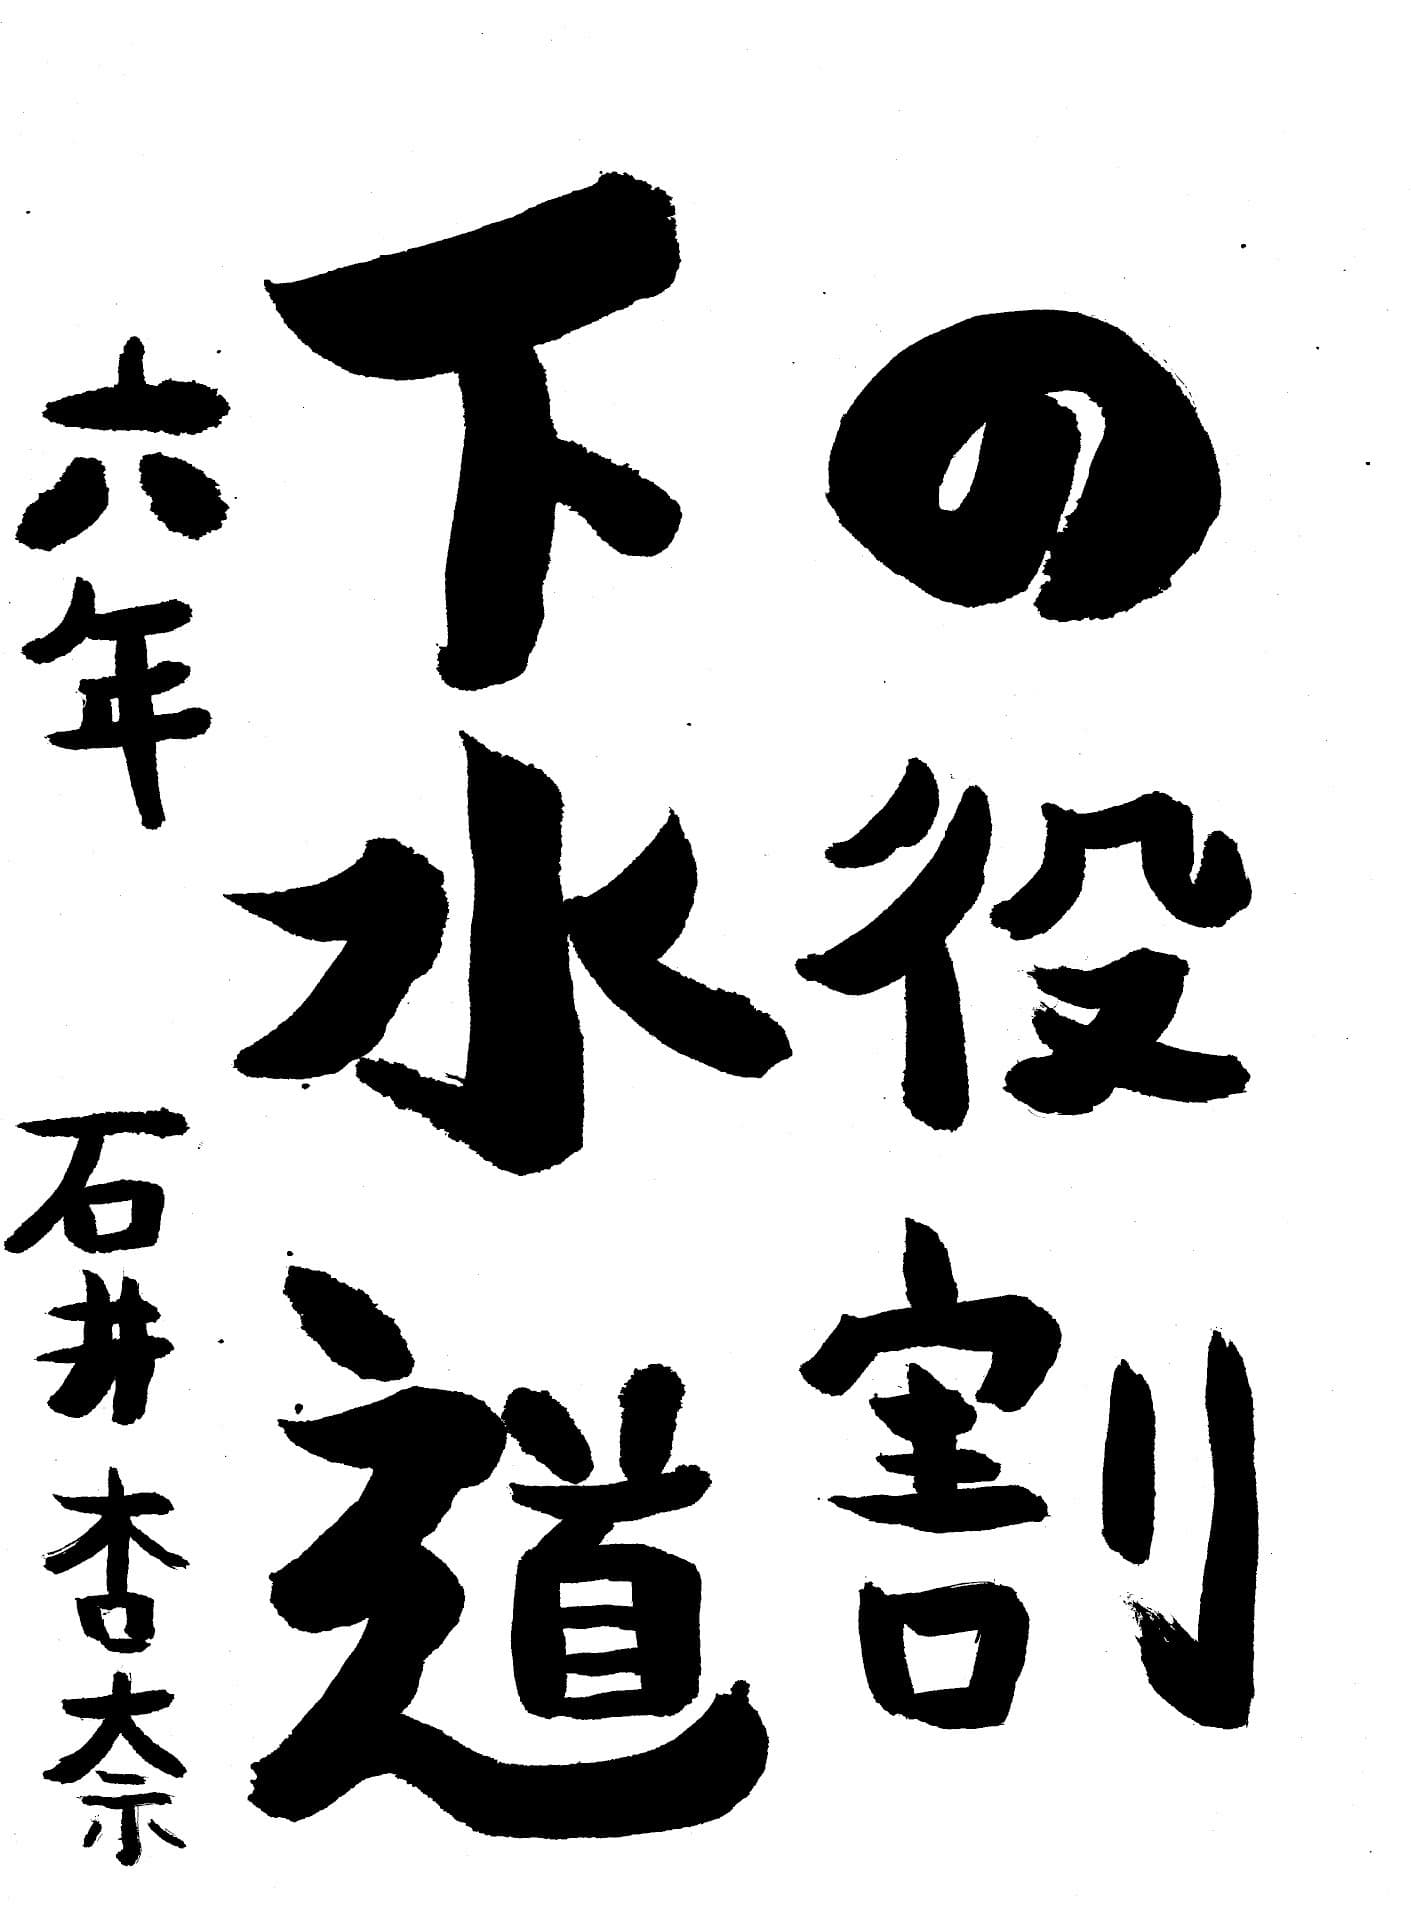 の役割
下水道
六年 石井杏奈